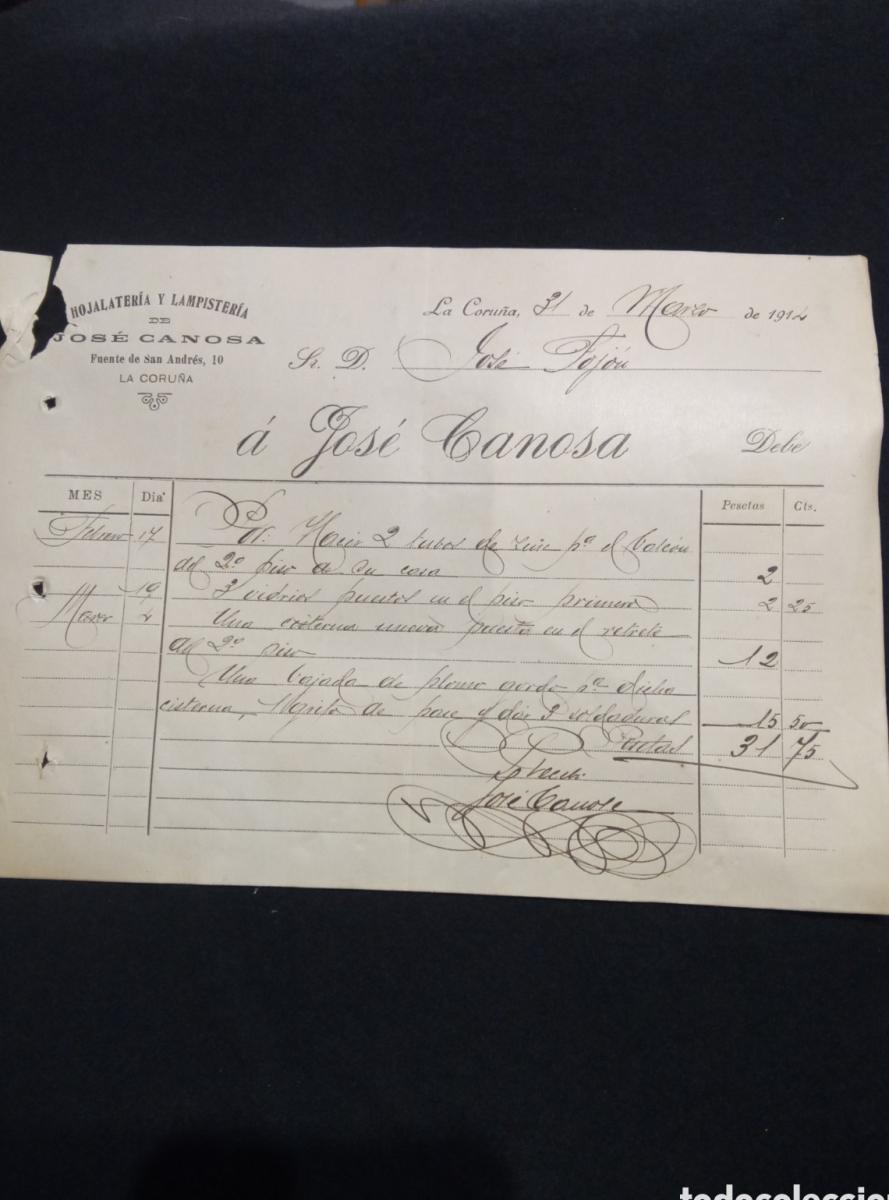 HOJALATERÍA Y LAMPISTERÍA
DE
JOSÉ CANOSA
Fuente de San Andrés, 10
LA CORUÑA
La Coruña, 31 de Marzo de 1912
Sr. D. José Fojón
á José Canosa Debe
MES Dia Pesetas Cts.
Febrero 17 Por Hacer 2 tubos de zinc pª el balcón
del 2º piso de su casa 2
19 3 vidrios puestos en el piso primero 2 25
Marzo 2 Una cisterna nueva puesta en el retrete
del 2º piso 12
Una bajada de plomo gordo pª dicha
cisterna, de 3 soldaduras 15 50
Pesetas 31 75
José Canosa
todocoleccion